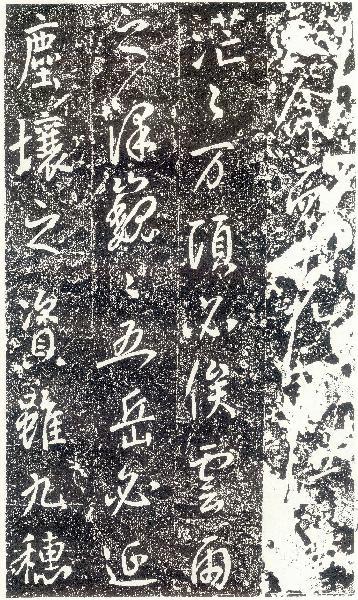 茫〻万頃必俟雲雨
之澤巍〻五岳必延
塵壤之資雖九穗